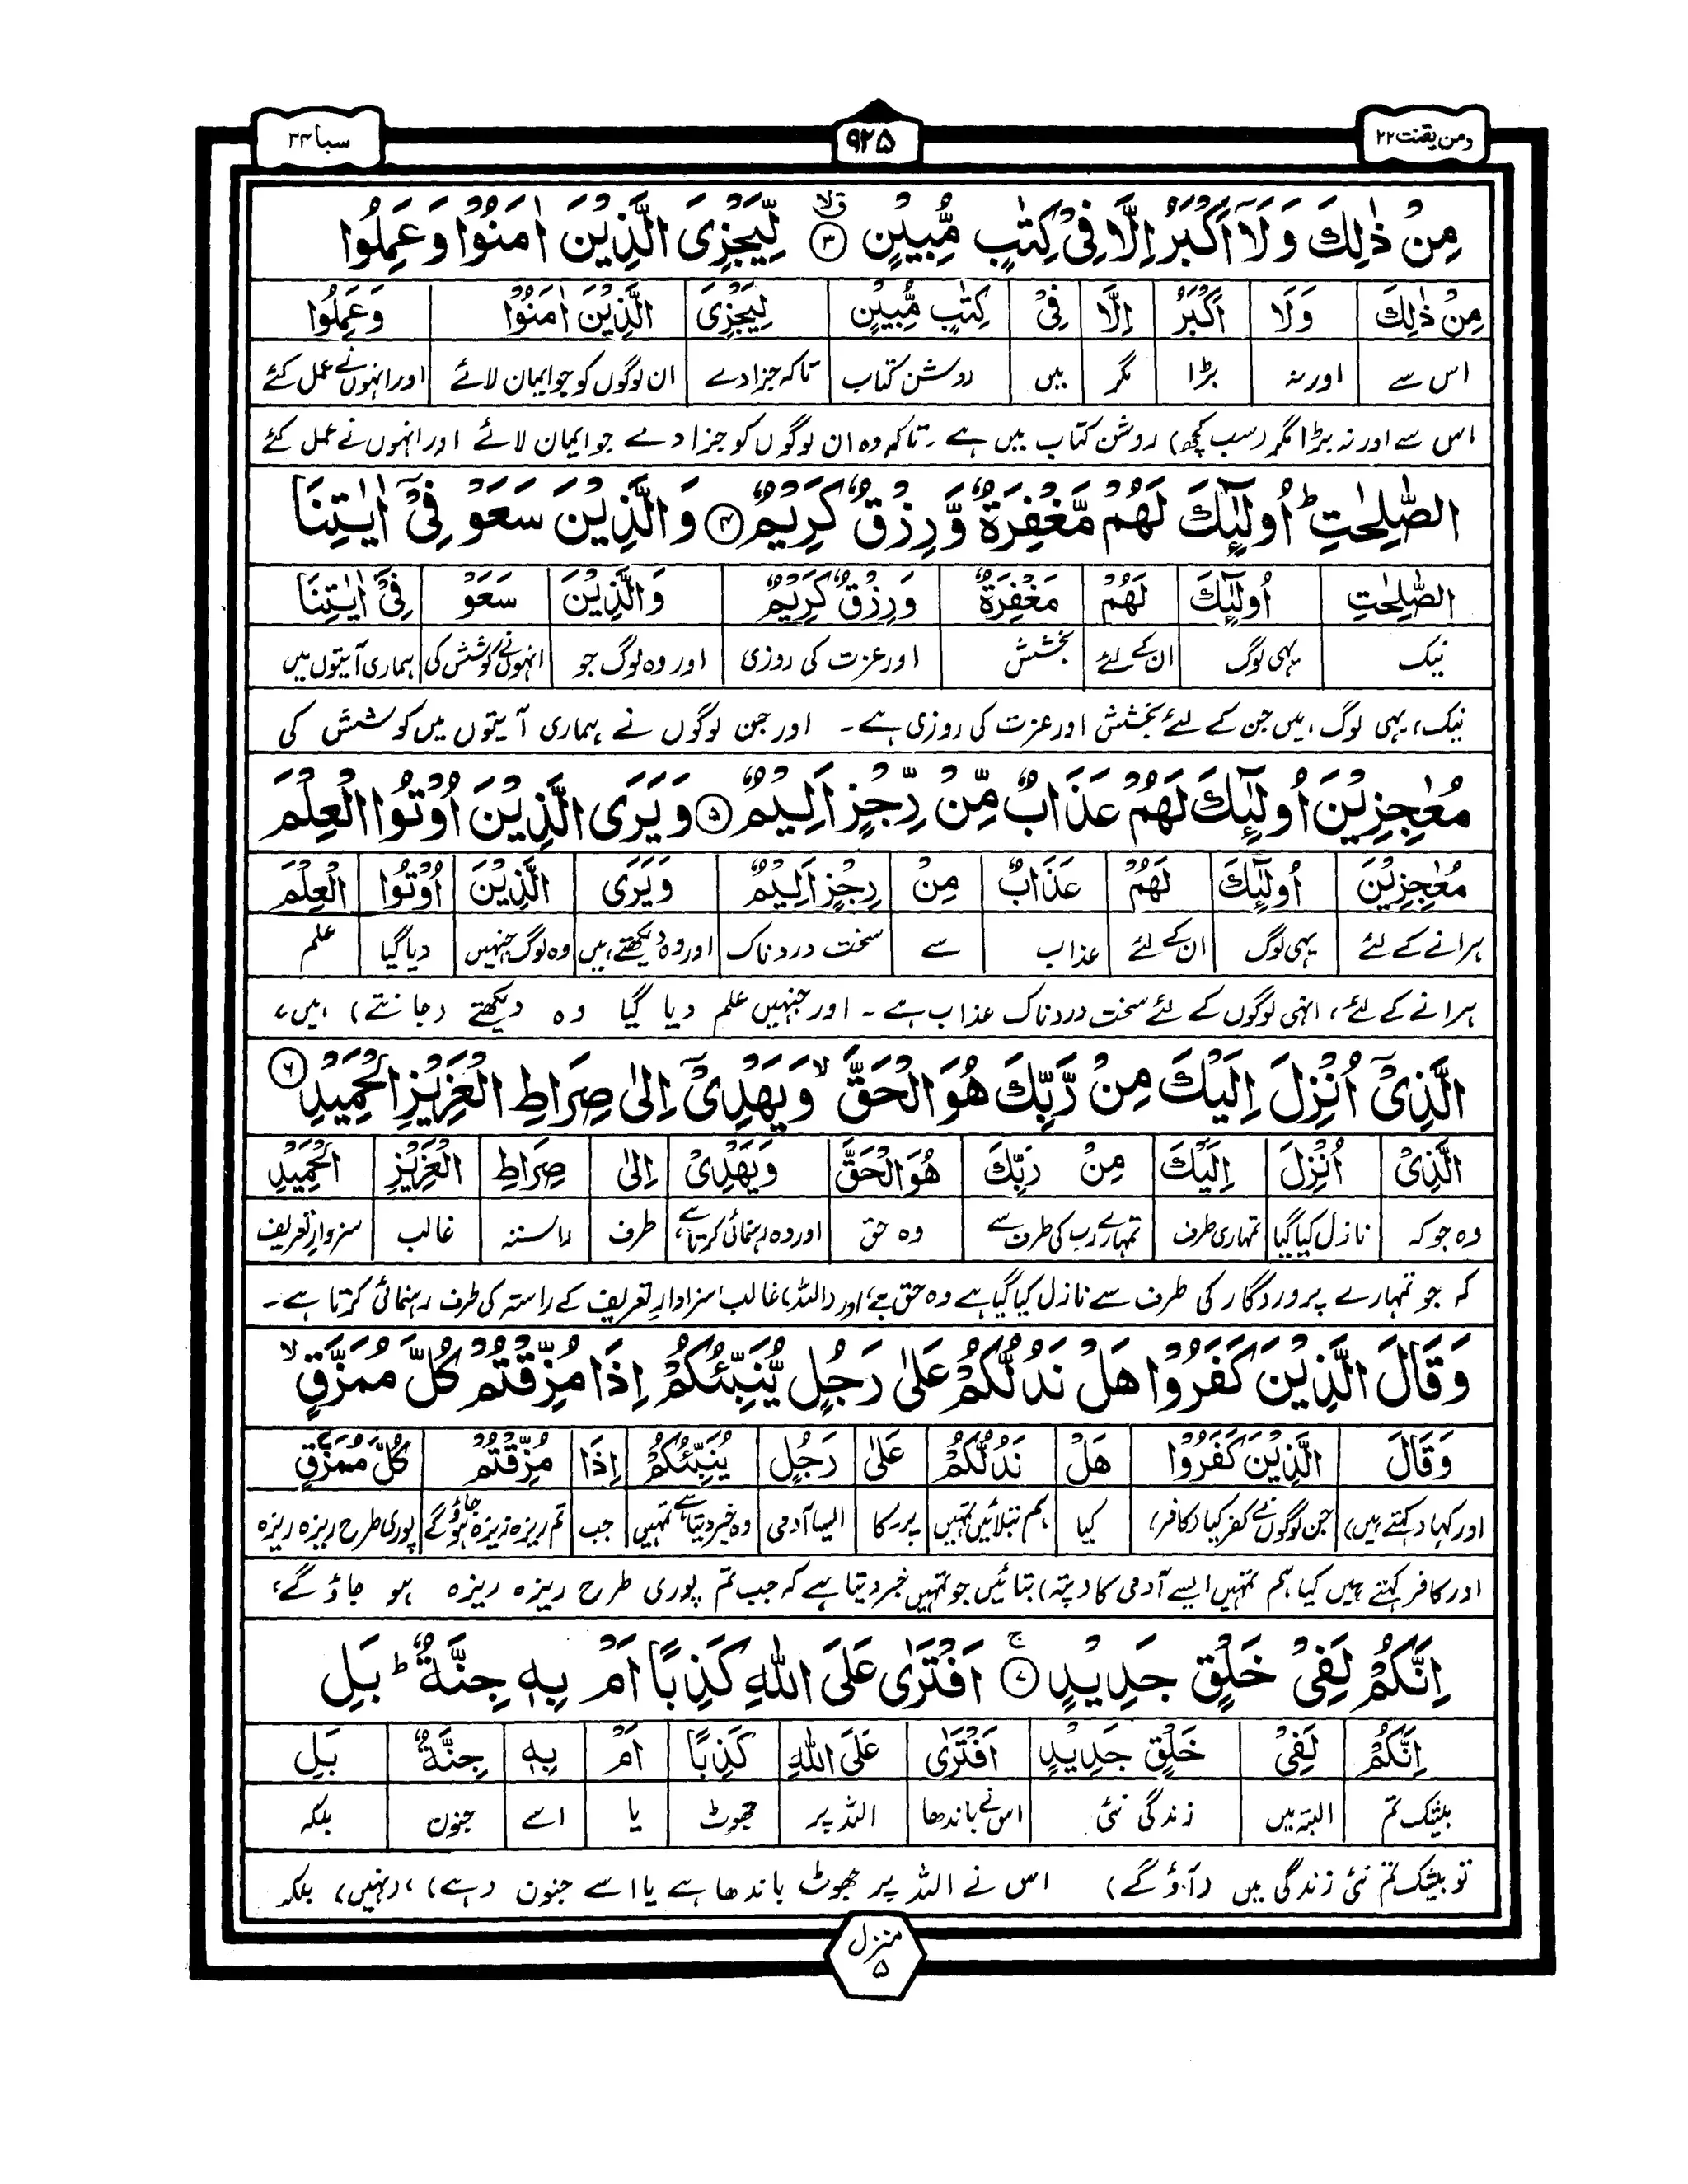 ومن یقنت ۲۲
۹۲۵
سبا ۳۴
مِنْ ذٰلِكَ وَلَآ اَكْبَرُ اِلَّا فِیْ كِتٰبٍ مُّبِیْنٍ ۝۳ لِّیَجْزِیَ الَّذِیْنَ اٰمَنُوْا وَعَمِلُوا
مِنْ ذٰلِكَ وَلَا اَكْبَرُ اِلَّا فِیْ كِتٰبٍ مُّبِیْنٍ لِیَجْزِیَ الَّذِیْنَ اٰمَنُوْا وَعَمِلُوا
اس سے اور نہ بڑا مگر میں روشن کتاب تاکہ جزا دے ان لوگوں کو جو ایمان لائے اور انہوں نے عمل کئے
اس سے اور نہ بڑا مگر (سب کچھ) روشن کتاب میں ہے۔ تاکہ وہ ان لوگوں کو جزا دے جو ایمان لائے اور انہوں نے عمل کئے
الصّٰلِحٰتِ ؕ اُولٰٓئِكَ لَهُمْ مَّغْفِرَةٌ وَّرِزْقٌ كَرِیْمٌ ۝۴ وَالَّذِیْنَ سَعَوْ فِیْۤ اٰیٰتِنَا
الصّٰلِحٰتِ اُولٰٓئِكَ لَهُمْ مَغْفِرَةٌ وَرِزْقٌ كَرِیْمٌ وَالَّذِیْنَ سَعَوْ فِیْۤ اٰیٰتِنَا
نیک یہی لوگ ان کے لئے بخشش اور عزت کی روزی اور وہ لوگ جو انہوں نے کوشش کی ہماری آیتوں میں
نیک، یہی لوگ ہیں جن کے لئے بخشش اور عزت کی روزی ہے۔ اور جن لوگوں نے ہماری آیتوں میں کوشش کی
مُعٰجِزِیْنَ اُولٰٓئِكَ لَهُمْ عَذَابٌ مِّنْ رِّجْزٍ اَلِیْمٌ ۝۵ وَیَرَی الَّذِیْنَ اُوْتُوا الْعِلْمَ
مُعٰجِزِیْنَ اُولٰٓئِكَ لَهُمْ عَذَابٌ مِنْ رِجْزٍ اَلِیْمٌ وَیَرَی الَّذِیْنَ اُوْتُوا الْعِلْمَ
ہرانے کے لئے یہی لوگ ان کے لئے عذاب سے سخت دردناک اور وہ دیکھتے ہیں وہ لوگ جنہیں دیا گیا علم
ہرانے کے لئے، انہی لوگوں کے لئے سخت دردناک عذاب ہے۔ اور جنہیں علم دیا گیا وہ دیکھتے (جانتے) ہیں،
الَّذِیْۤ اُنْزِلَ اِلَیْكَ مِنْ رَّبِّكَ هُوَ الْحَقَّ ۙ وَیَهْدِیْۤ اِلٰی صِرَاطِ الْعَزِیْزِ الْحَمِیْدِ ۝۶
الَّذِیْ اُنْزِلَ اِلَیْكَ مِنْ رَبِّكَ هُوَ الْحَقَّ وَیَهْدِیْ اِلٰی صِرَاطِ الْعَزِیْزِ الْحَمِیْدِ
وہ جو کہ نازل کیا گیا تمہاری طرف تمہارے رب کی طرف سے وہ حق اور وہ رہنمائی کرتا ہے طرف راستہ غالب سزوارِ تعریف
کہ جو تمہارے پروردگار کی طرف سے نازل کیا گیا ہے وہ حق ہے، اور (اللہ) غالب، سزاوارِ تعریف کے راستہ کی طرف رہنمائی کرتا ہے۔
وَقَالَ الَّذِیْنَ كَفَرُوْا هَلْ نَدُلُّكُمْ عَلٰی رَجُلٍ یُّنَبِّئُكُمْ اِذَا مُزِّقْتُمْ كُلَّ مُمَزَّقٍ ۙ
وَقَالَ الَّذِیْنَ كَفَرُوْا هَلْ نَدُلُّكُمْ عَلٰی رَجُلٍ یُنَبِّئُكُمْ اِذَا مُزِّقْتُمْ كُلَّ مُمَزَّقٍ
اور کہا (کہتے ہیں) جن لوگوں نے کفر کیا (کافر) کیا ہم بتلائیں تمہیں پر۔ کا ایسا آدمی وہ خبر دیتا ہے تمہیں جب تم ریزہ ریزہ ہو جاؤ گے پوری طرح ریزہ ریزہ
اور کافر کہتے ہیں کیا ہم تمہیں ایسے آدمی کا (پتہ) بتائیں جو تمہیں خبر دیتا ہے کہ جب تم پوری طرح ریزہ ریزہ ہو جاؤ گے،
اِنَّكُمْ لَفِیْ خَلْقٍ جَدِیْدٍ ۝۷ ۚ اَفْتَرٰی عَلَی اللّٰهِ كَذِبًا اَمْ بِهٖ جِنَّةٌ ؕ بَلِ
اِنَّكُمْ لَفِیْ خَلْقٍ جَدِیْدٍ اَفْتَرٰی عَلَی اللّٰهِ كَذِبًا اَمْ بِهٖ جِنَّةٌ بَلِ
بیشک تم البتہ میں زندگی نئی اس نے باندھا اللہ پر جھوٹ یا اسے جنون بلکہ
تو بیشک تم نئی زندگی میں (آؤ گے) اس نے اللہ پر جھوٹ باندھا ہے یا اسے جنون (ہے)، (نہیں) بلکہ
منزل ۵